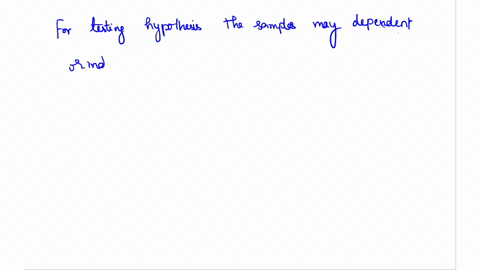 For testing hypothesis the samples may dependent
or ind